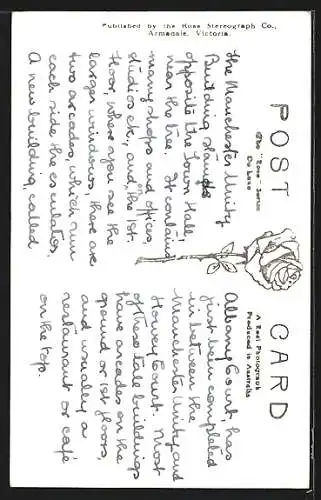 Published by the Rose Stereograph Co.,
Armadale, Victoria.
POST CARD
The "Rose" Series
De Luxe
A Real Photograph
Produced in Australia
the Manchester Unity
Building stands
opposite the Town Hall,
near the tree. It contains
many shops and offices,
studios etc., and, on the 1st.
floor, where you see the
larger windows, there are
two arcades, which run
each side the escalator.
A new building, called
Albany Court, has
just been completed
in between the
Manchester Unity and
Howey Court. Most
of these tall buildings
have arcades on the
ground or 1st floors,
and usually a
restaurant or café
on the top.